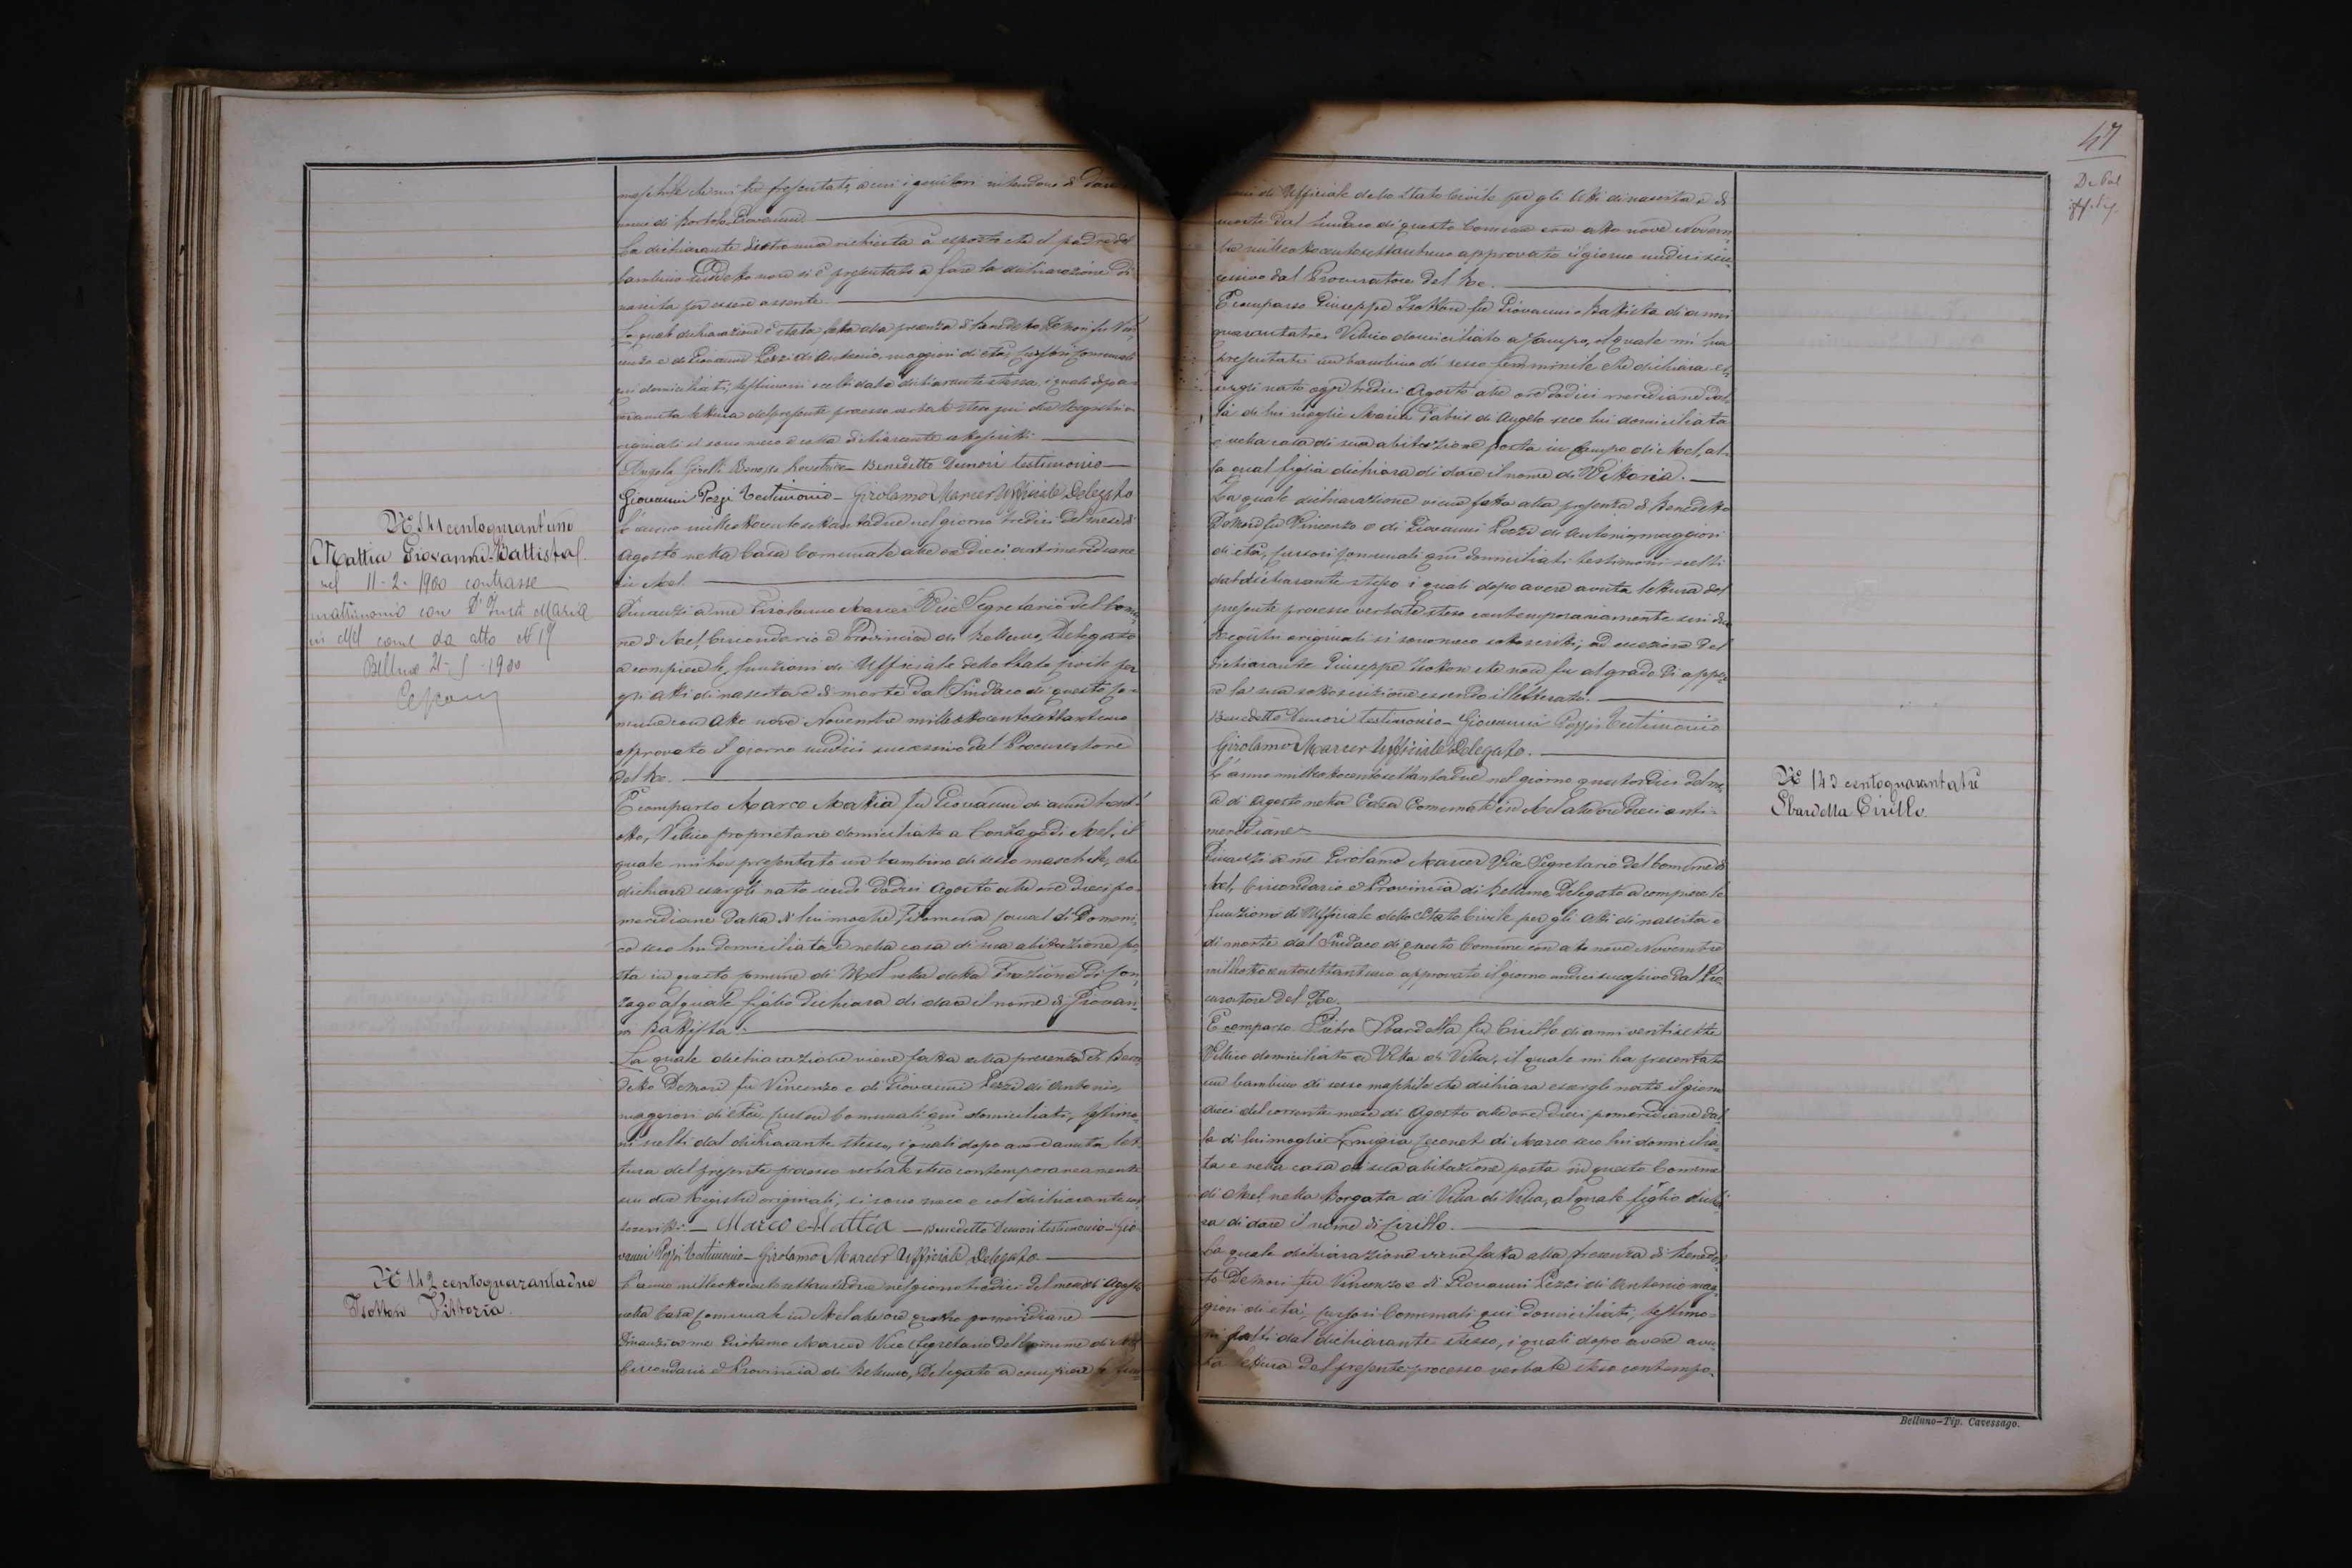 maschile che mi ha presentato, a cui i genitori intendono di dare il
nome di Bortolo Giovanni.
La dichiarante dietro mia richiesta à esposto che il padre del
bambino suddetto non si è presentato a fare la dichiarazione di
nascita per essere assente.
La quale dichiarazione è stata fatta alla presenza di Benedetto Demori fu Vin-
cenzo e di Giovanni Pezzi di Antonio, maggiori di età, cursori comunali
qui domiciliati, testimoni scelti dalla dichiarante stessa, i quali dopo a-
ver avuta lettura del presente processo verbale steso sui due Registri o-
riginali si sono meco e colla dichiarante sottoscritti.
Angela Levatrice - Benedetto Demori testimonio
Giovanni Pezzi Testimonio - Girolamo Marcer Ufficiale Delegato
N. 141 centoquarantuno
Mattia Giovanni-Battista
nel 11-2-1900 contrasse
matrimonio con D' Incà Maria
in Mel come da atto N 19
Belluno 21-5-1900
L'anno milleottocentosettantadue nel giorno tredici del mese di
Agosto nella Casa Comunale alle ore dieci antimeridiane
in Mel.
Dinanzi a me Girolamo Marcer Vice Segretario del Comu-
ne di Mel, Circondario e Provincia di Belluno, Delegato
a compiere le funzioni di Ufficiale dello Stato Civile per
gli atti di nascita e di morte dal Sindaco di questo Co-
mune con Atto nove Novembre milleottocentosettantuno
approvato il giorno undici successivo dal Procuratore
del Re.
È comparso Marco Mattia fu Giovanni di anni trent'
otto, Villico proprietario domiciliato a Conzago di Mel, il
quale mi ha presentato un bambino di sesso maschile, che
dichiara essergli nato dodici Agosto alle ore dieci po-
meridiane dalla di lui moglie Filomena di Domeni-
co seco lui domiciliata e nella casa di sua abitazione po-
sta in questo Comune di Mel nella detta Frazione di Con-
zago al quale figlio dichiara di dare il nome di Giovan-
ni Battista.
La quale dichiarazione viene fatta alla presenza di Bene-
detto Demori fu Vincenzo e di Giovanni Pezzi di Antonio,
maggiori di età, cursori Comunali qui domiciliati, testimo-
ni scelti dal dichiarante stesso, i quali dopo avere avuta let-
tura del presente processo verbale steso contemporaneamente
sui due Registri originali, si sono meco e col dichiarante sot-
toscritti. - Marco Mattia - Benedetto Demori testimonio - Gio-
vanni Pezzi Testimonio - Girolamo Marcer Ufficiale Delegato.
N. 142 centoquarantadue
Isotton Vittoria.
L'anno milleottocentosettantadue nel giorno tredici del mese di Agosto
nella Casa Comunale in Mel alle ore quattro pomeridiane
Dinanzi a me Girolamo Marcer Vice Segretario del Comune di Mel
Circondario e Provincia di Belluno, Delegato a compiere le fun-
47
zioni di Ufficiale dello Stato Civile per gli Atti di nascita e di
morte dal Sindaco di questo Comune con atto nove Novem-
bre milleottocentosettantuno approvato il giorno undici suc-
cessivo dal Procuratore del Re.
È comparso Giuseppe Isotton fu Giovanni Battista di anni
quarantatre, Villico domiciliato a Campo, il quale mi ha
presentato un bambino di sesso femminile che dichiara es-
sergli nato oggi tredici Agosto alle ore dodici meridiane dal-
la di lui moglie Maria Fabris di Angelo seco lui domiciliata
e nella casa di sua abitazione posta in Campo di Mel, al-
la qual figlia dichiara di dare il nome di Vittoria.
La quale dichiarazione viene fatta alla presenza di Benedetto
Demori fu Vincenzo e di Giovanni Pezzi di Antonio, maggiori
di età, cursori comunali qui domiciliati testimoni scelti
dal dichiarante stesso i quali dopo avere avuta lettura del
presente processo verbale steso contemporaneamente sui due
Registri originali si sono meco sottoscritti, ad eccezione del
dichiarante Giuseppe Isotton che non fu al grado di appor-
re la sua sottoscrizione essendo illetterato.
Benedetto Demori testimonio - Giovanni Pezzi Testimonio
Girolamo Marcer Ufficiale Delegato.
N. 143 centoquarantatrè
Sbardella Cirillo.
L'anno milleottocentosettantadue nel giorno quattordici del me-
se di Agosto nella Casa Comunale in Mel alle ore dieci anti-
meridiane
Dinanzi a me Girolamo Marcer Vice Segretario del Comune di
Mel, Circondario e Provincia di Belluno, Delegato a compiere le
funzioni di Ufficiale dello Stato Civile per gli Atti di nascita e
di morte dal Sindaco di questo Comune con atto nove Novembre
milleottocentosettantuno approvato il giorno undici successivo dal Pro-
curatore del Re.
È comparso Pietro Sbardella fu Cirillo di anni ventisette
Villico domiciliato a Villa di Villa, il quale mi ha presentato
un bambino di sesso maschile che dichiara essergli nato il giorno
dieci del corrente mese di Agosto alle ore dieci pomeridiane dal-
la di lui moglie di Marco seco lui domicilia-
ta e nella casa di sua abitazione posta in questo Comune
di Mel nella Borgata di Villa di Villa, al quale figlio dichia-
ra di dare il nome di Cirillo.
La quale dichiarazione viene fatta alla presenza di Benedet-
to Demori fu Vincenzo e di Giovanni Pezzi di Antonio mag-
giori di età, cursori Comunali qui domiciliati, testimo-
ni scelti dal dichiarante stesso, i quali dopo avere avu-
ta lettura del presente processo verbale steso contempo-
Belluno-Tip. Cavessago.